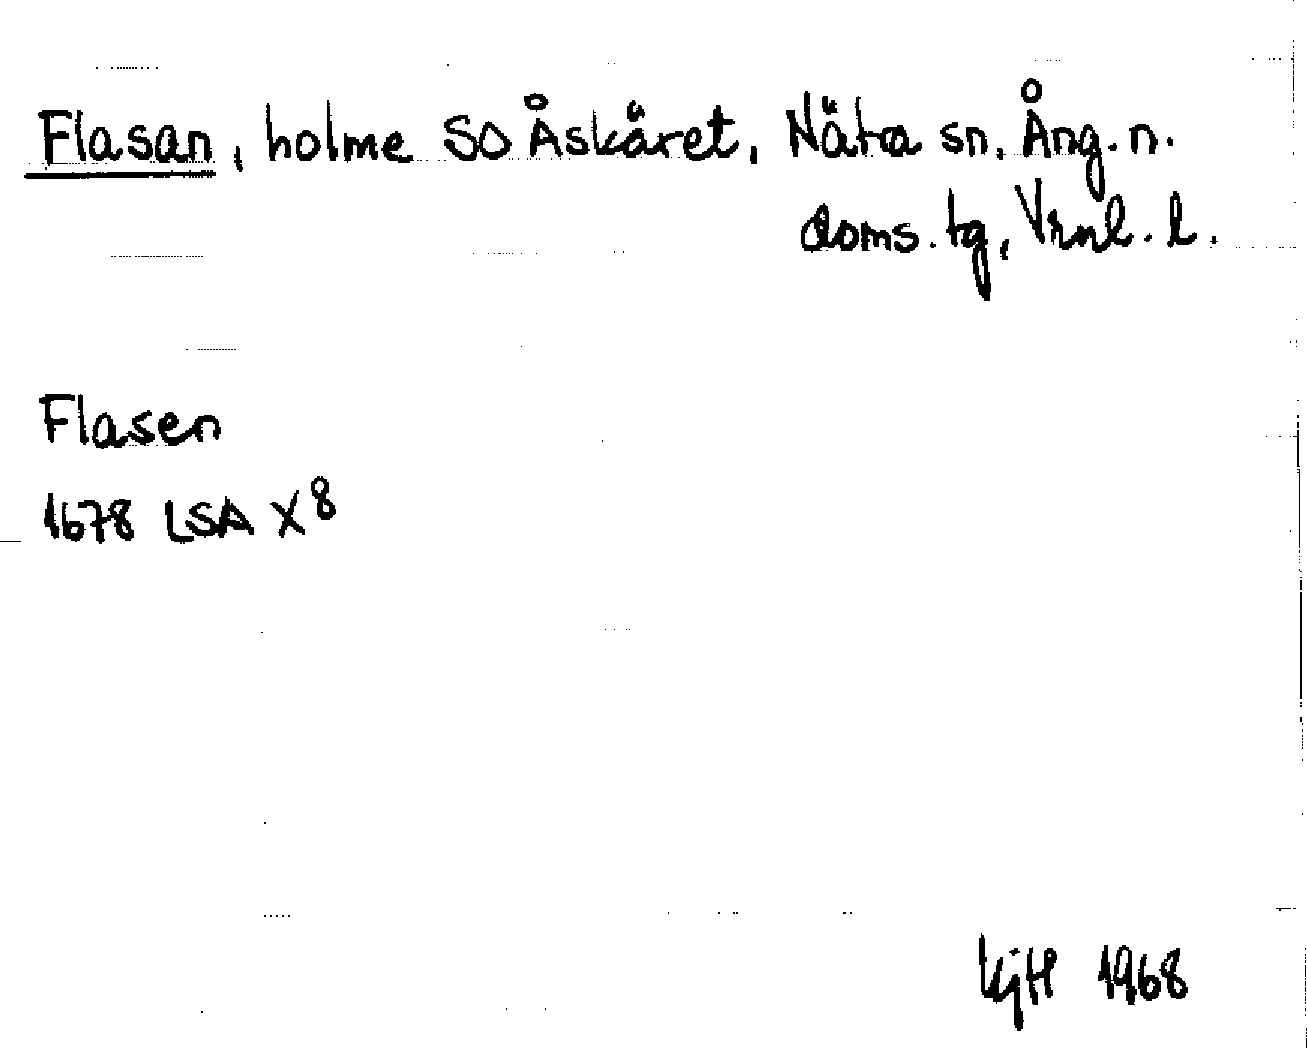 Flasan, holme SO Åskäret, Nätra sn, Ång. n.
doms. tg, Vrnl. l.
Flasen
1678 LSA X⁸
KjH 1968